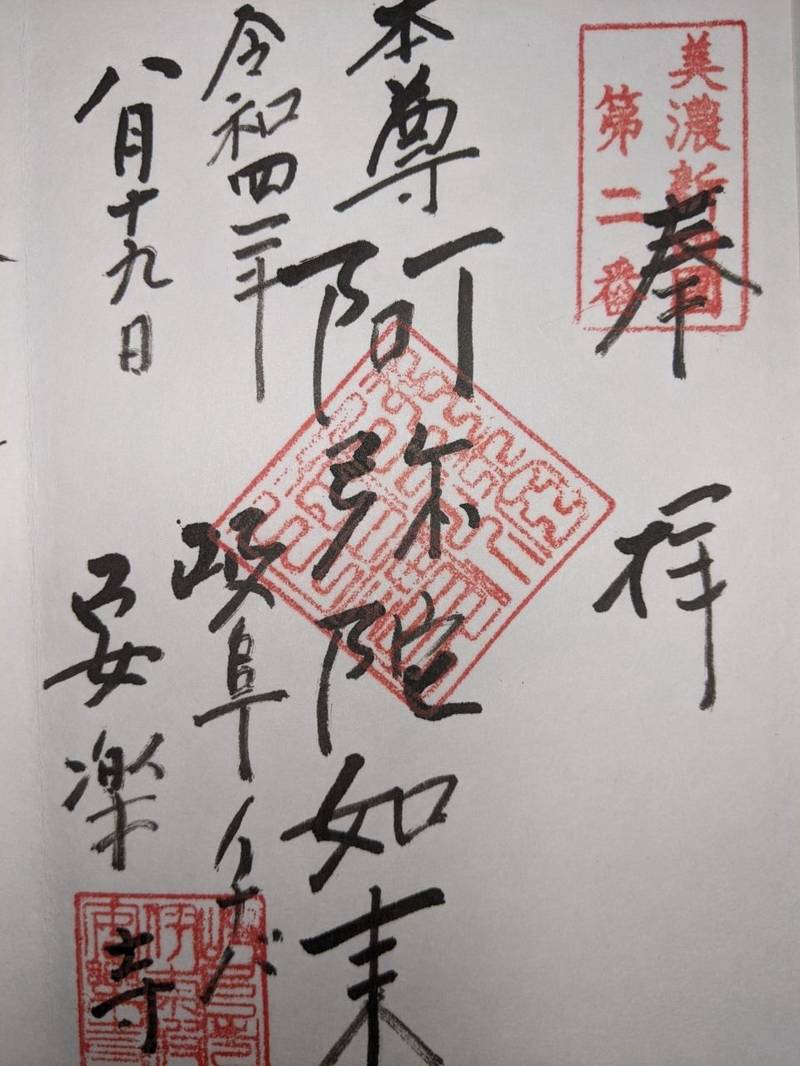 美濃新四国
第二番
奉拝
本尊 阿弥陀如来
令和四年
八月十九日
岐阜イナバ
安楽寺